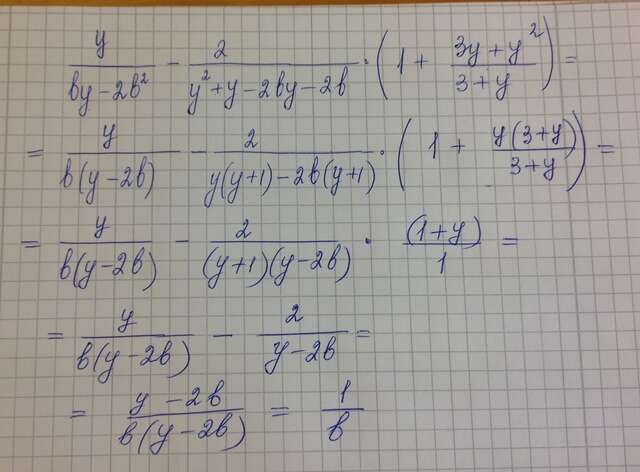 y/(by-2b²) - 2/(y²+y-2by-2b) · (1 + (3y+y²)/(3+y)) =
= y/(b(y-2b)) - 2/(y(y+1)-2b(y+1)) · (1 + y(3+y)/(3+y)) =
= y/(b(y-2b)) - 2/((y+1)(y-2b)) · (1+y)/1 =
= y/(b(y-2b)) - 2/(y-2b) =
= (y-2b)/(b(y-2b)) = 1/b